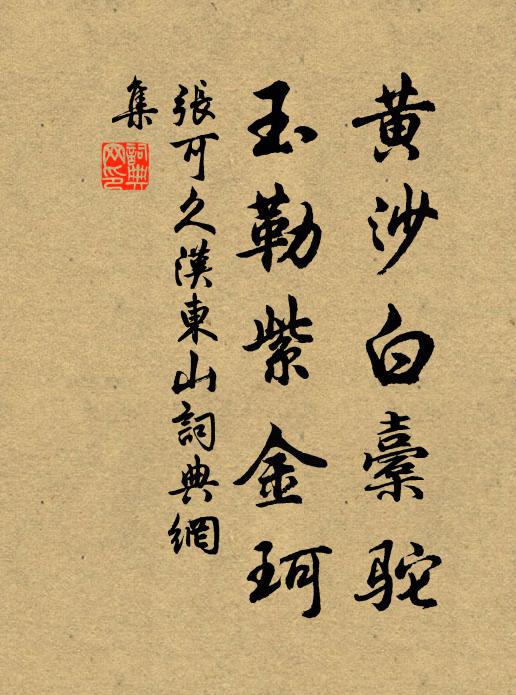 黄沙白橐駞
玉勒紫金珂
張可久漢東山詞典網
集
詞典網印